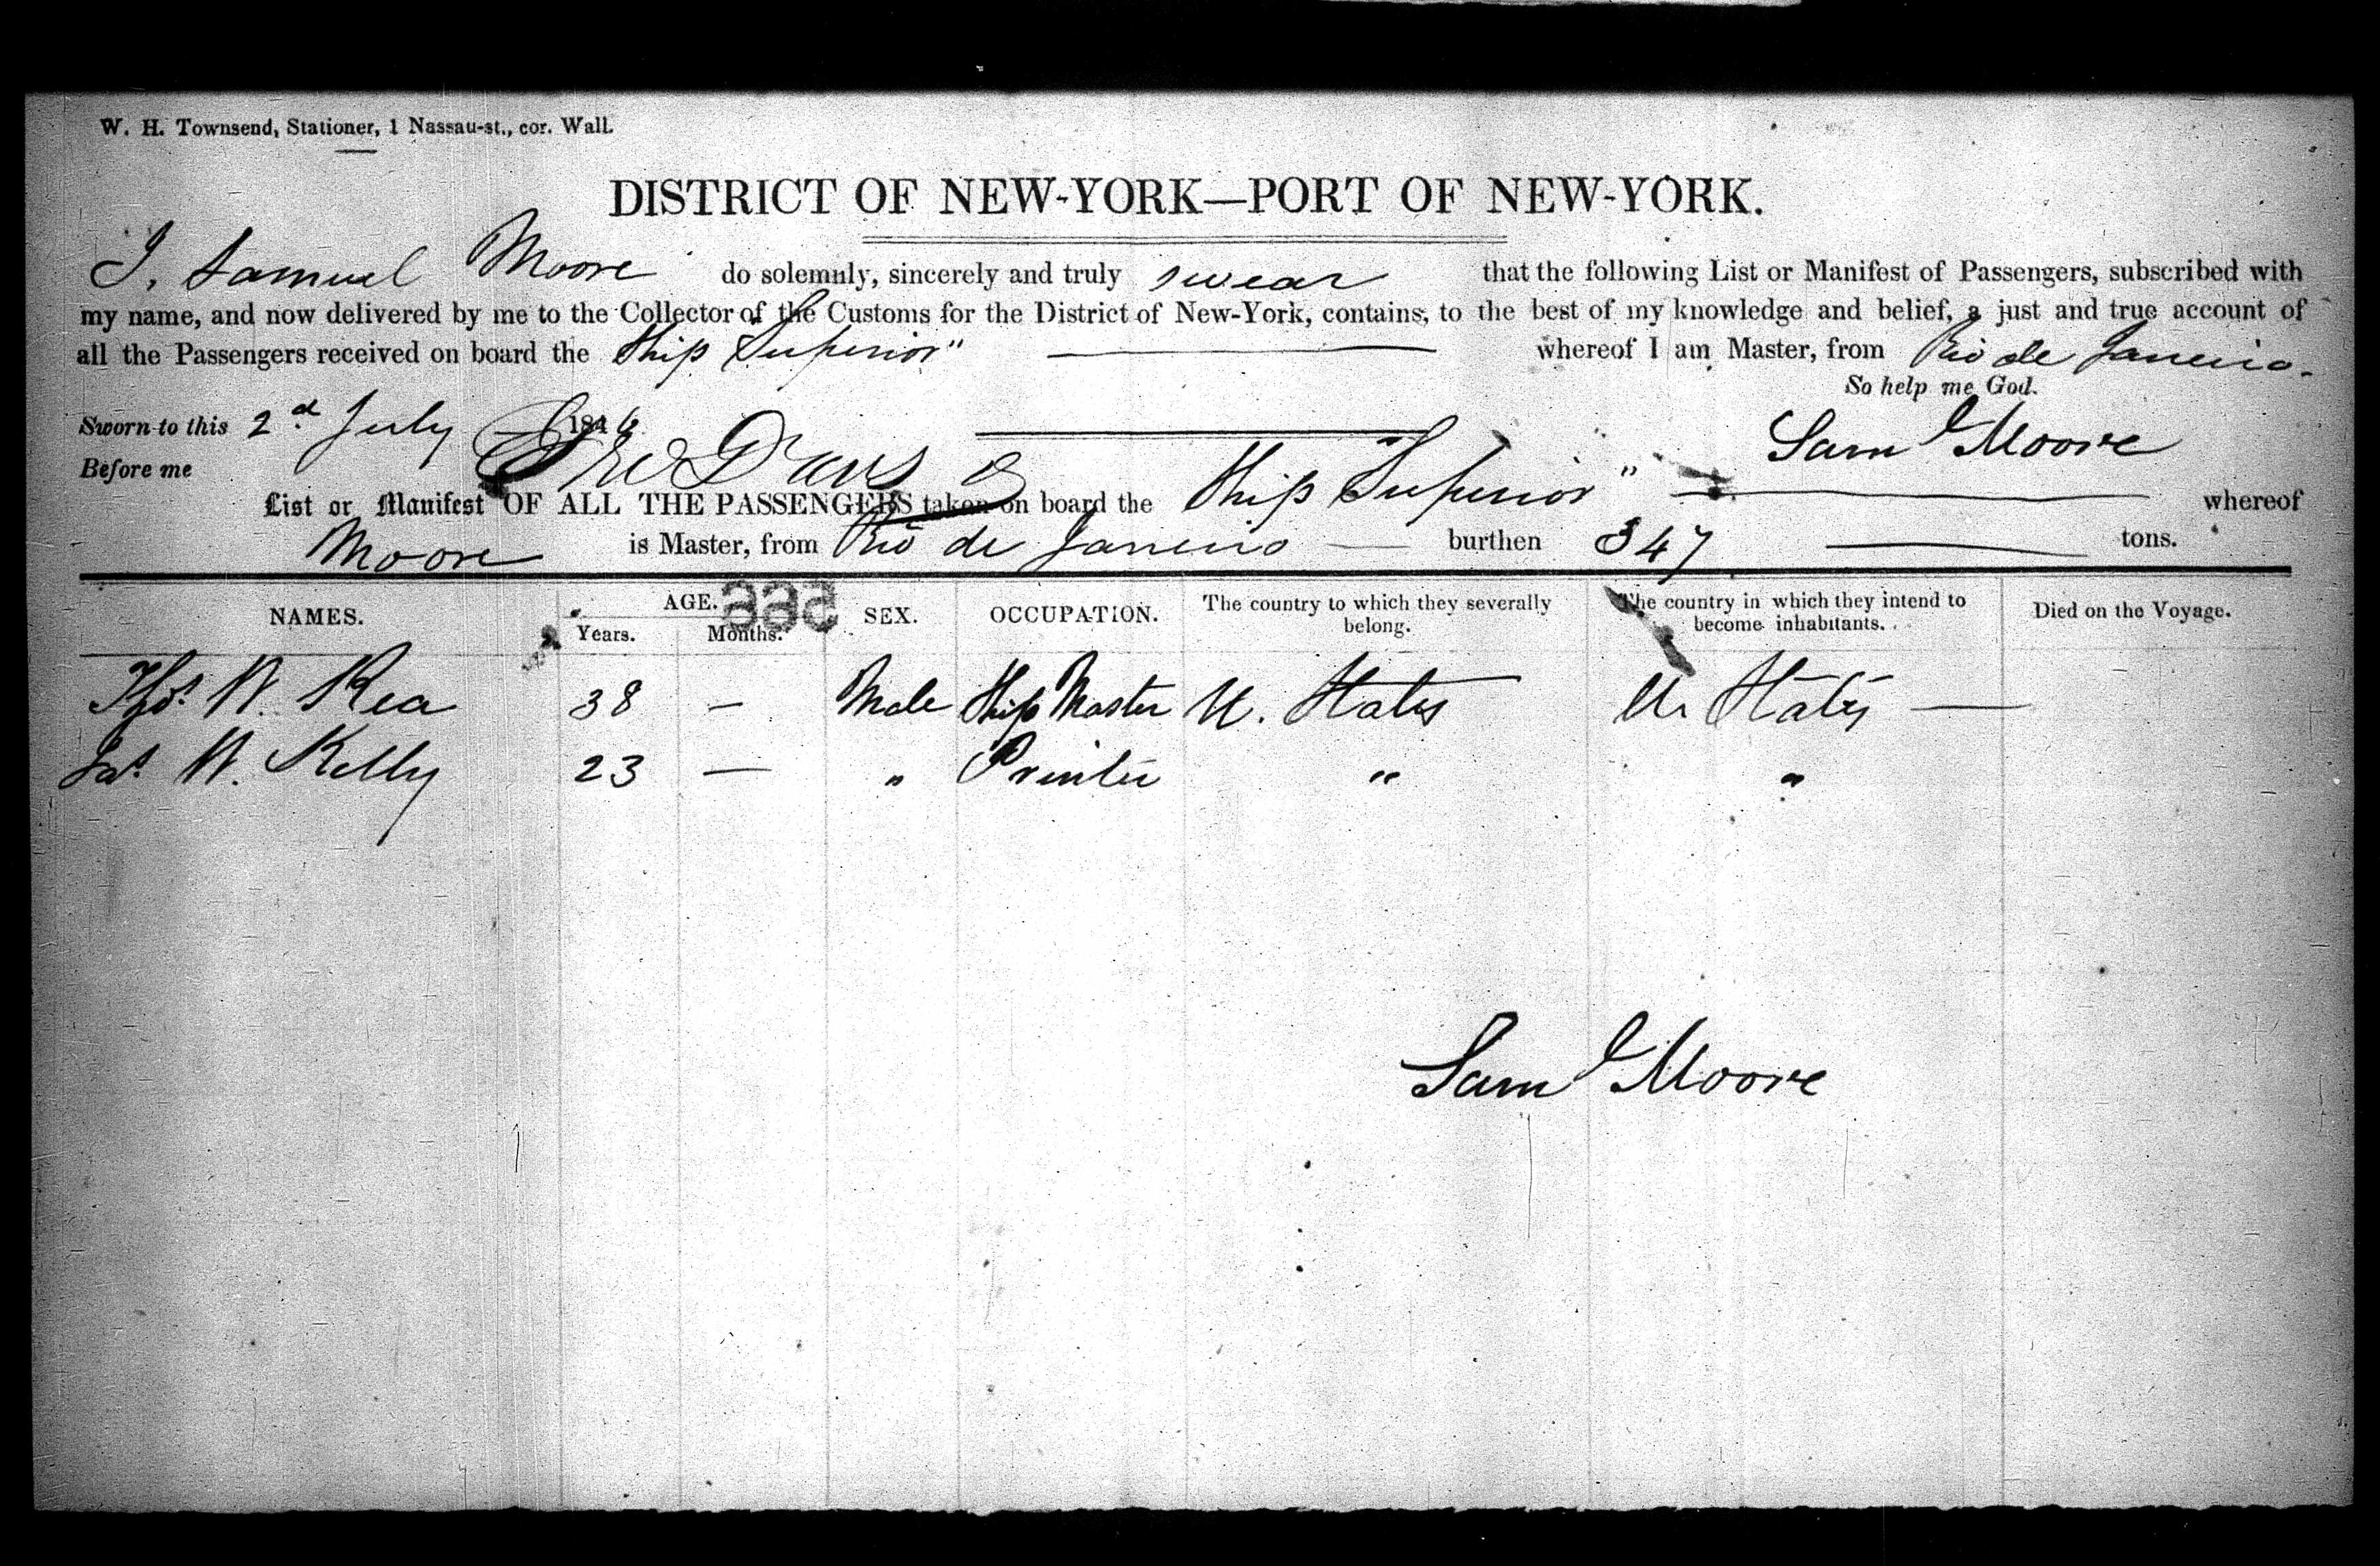 W. H. Townsend, Stationer, 1 Nassau-st., cor. Wall.
DISTRICT OF NEW-YORK—PORT OF NEW-YORK.
I, Samuel Moore do solemnly, sincerely and truly swear that the following List or Manifest of Passengers, subscribed with
my name, and now delivered by me to the Collector of the Customs for the District of New-York, contains, to the best of my knowledge and belief, a just and true account of
all the Passengers received on board the Ship Superior" whereof I am Master, from Rio de Janeiro.
So help me God.
Sworn to this 2d July 1846 Saml Moore
Before me
List or Manifest OF ALL THE PASSENGERS taken on board the Ship Superior" whereof
Moore is Master, from Rio de Janeiro — burthen 347 tons.
NAMES. AGE. SEX. OCCUPATION. The country to which they severally belong. The country in which they intend to become inhabitants. Died on the Voyage.
Years. Months.
Thos. W. Rea 38 — Male Ship Master U. States U. States —
Jas. W. Kelly 23 — " Printer " "
Saml Moore